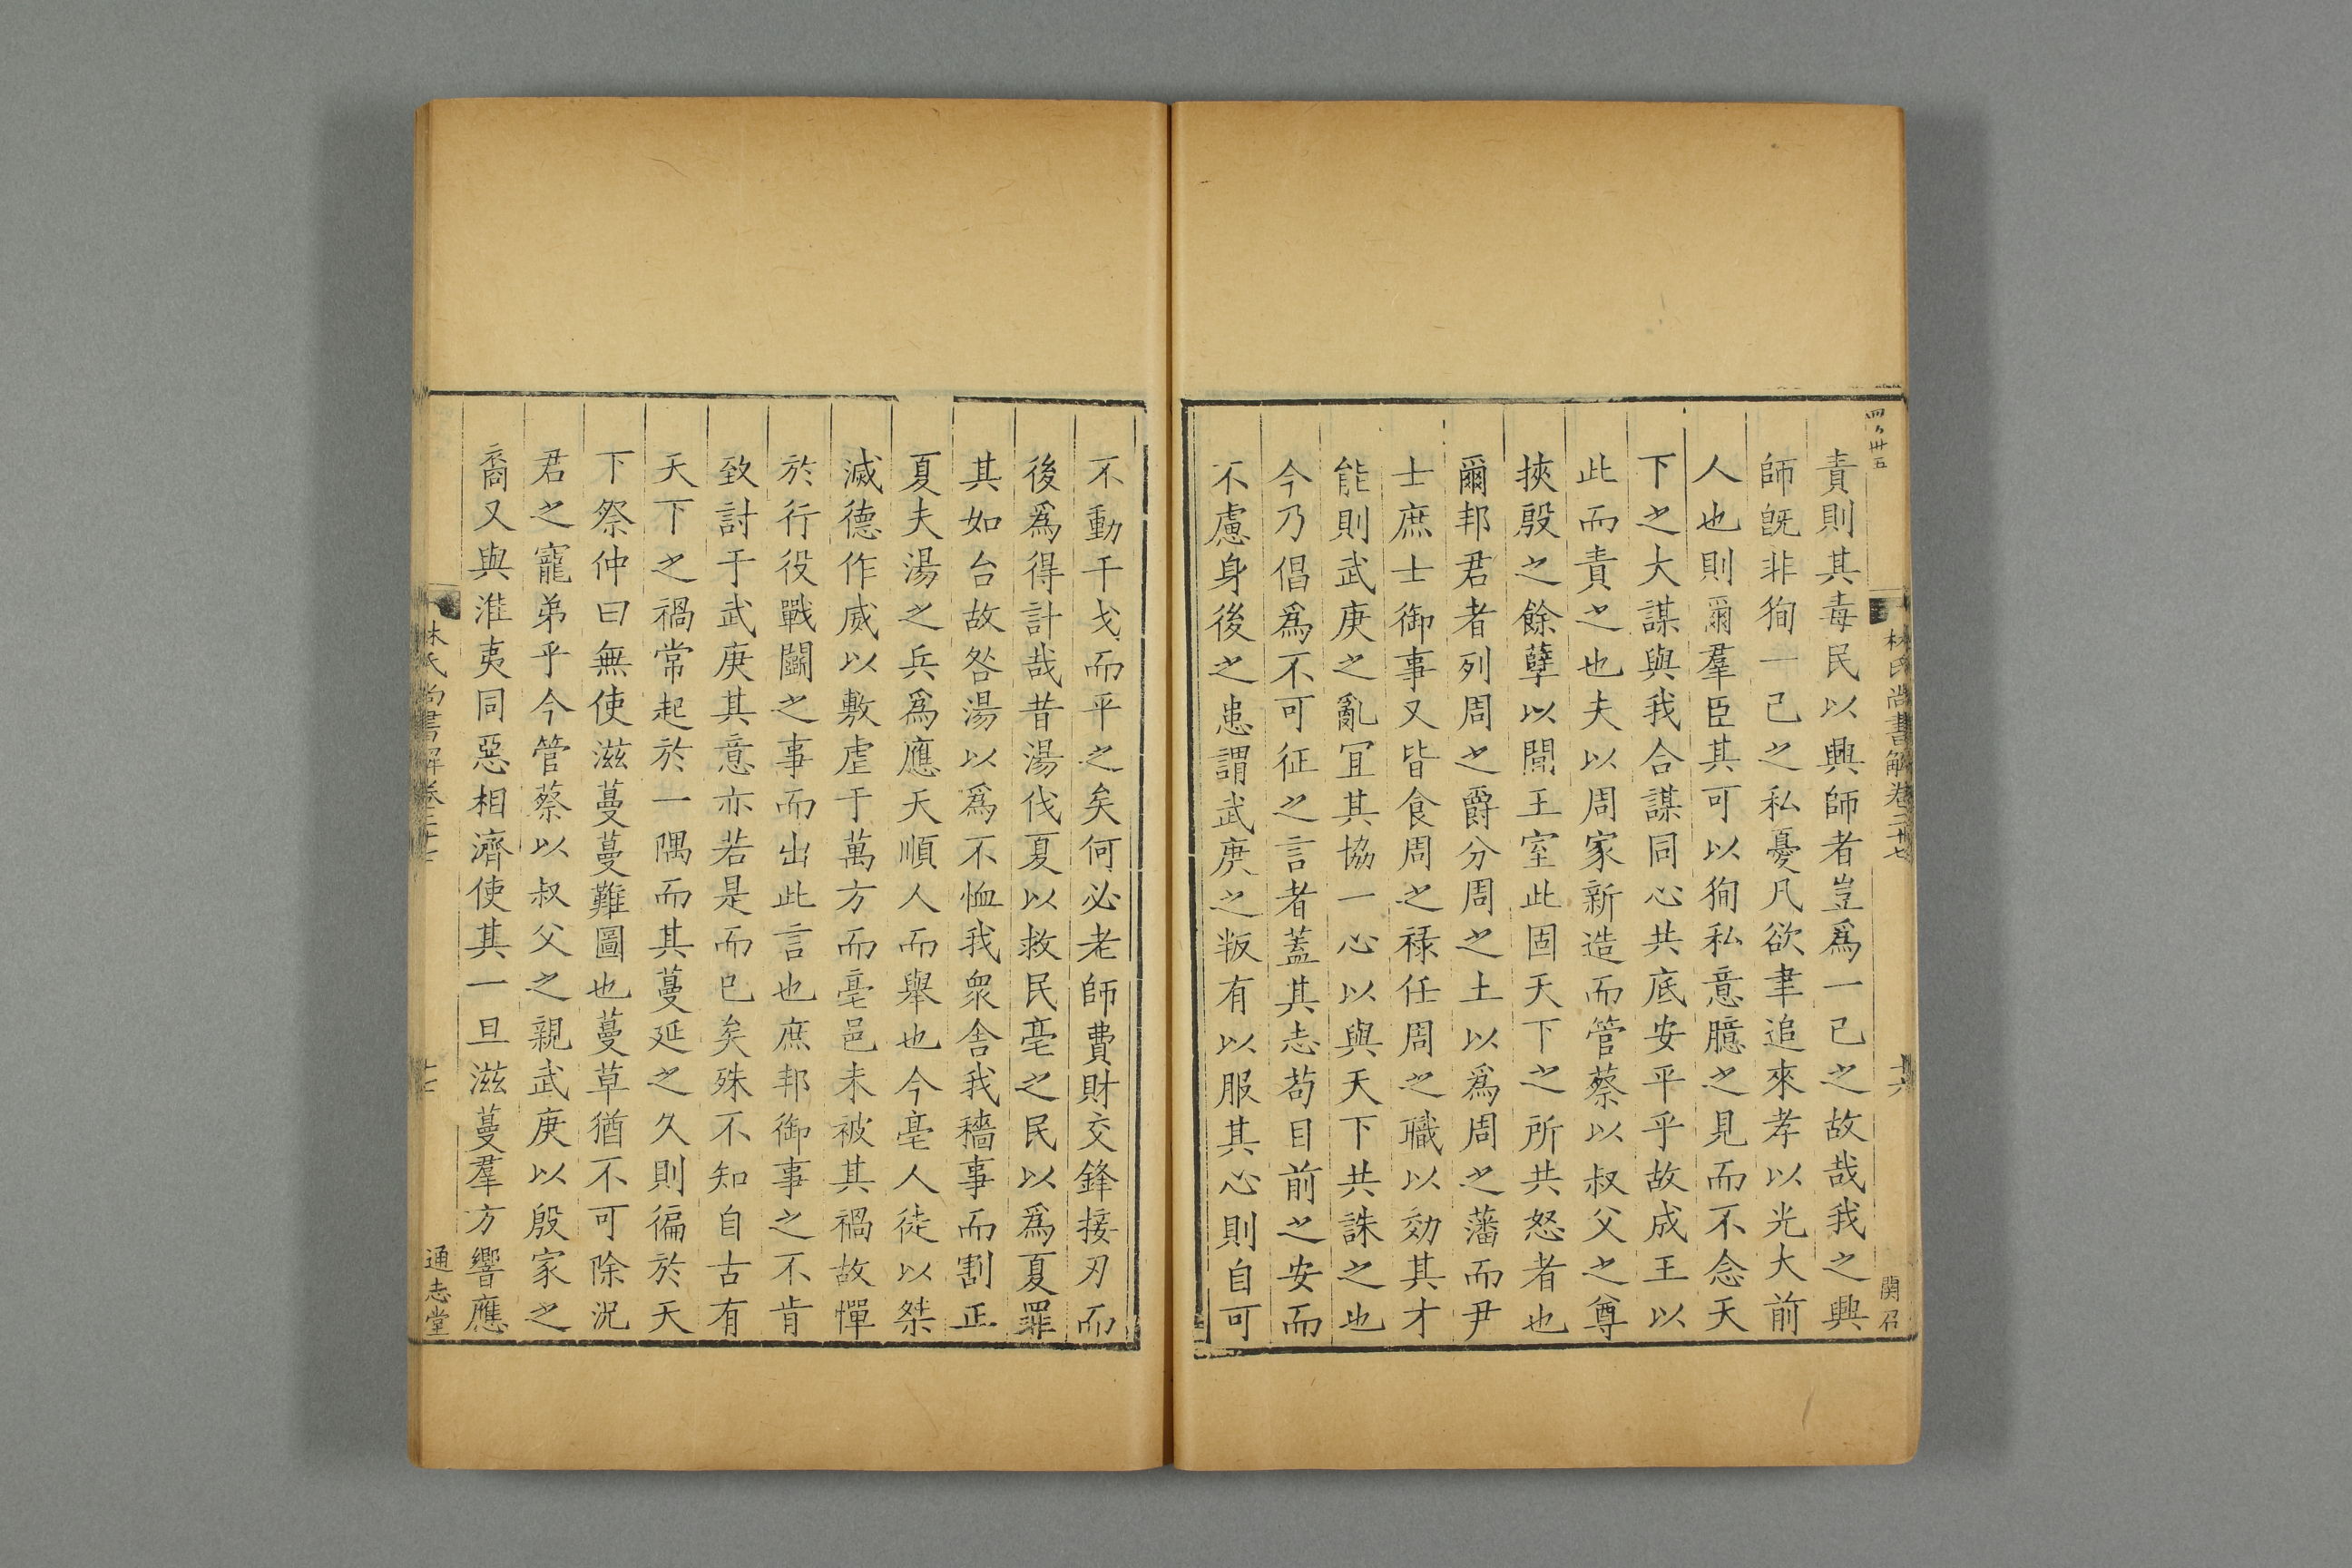 四百卅五
林氏尚書解卷二十七
十六
関召
責則其毒民以興師者豈爲一己之故哉我之興
師旣非狥一己之私憂凡欲聿追來孝以光大前
人也則爾羣臣其可以狥私意臆之見而不念天
下之大謀與我合謀同心共底安平乎故成王以
此而責之也夫以周家新造而管蔡以叔父之尊
挾殷之餘孽以閒王室此固天下之所共怒者也
爾邦君者列周之爵分周之土以爲周之藩而尹
士庶士御事又皆食周之祿任周之職以効其才
能則武庚之亂宜其協一心以與天下共誅之也
今乃倡爲不可征之言者蓋其志苟目前之安而
不慮身後之患謂武庚之叛有以服其心則自可
不動干戈而平之矣何必老師費財交鋒接刃而
後爲得計哉昔湯伐夏以救民亳之民以爲夏罪
其如台故咎湯以爲不恤我衆舍我穡事而割正
夏夫湯之兵爲應天順人而舉也今亳人徒以桀
滅德作威以敷虐于萬方而亳邑未被其禍故憚
於行役戰鬭之事而出此言也庶邦御事之不肯
致討于武庚其意亦若是而已矣殊不知自古有
天下之禍常起於一隅而其蔓延之久則徧於天
下祭仲曰無使滋蔓蔓難圖也蔓草猶不可除況
君之寵弟乎今管蔡以叔父之親武庚以殷家之
裔又與淮夷同惡相濟使其一旦滋蔓羣方響應
林氏尚書解卷二十七
十七
通志堂